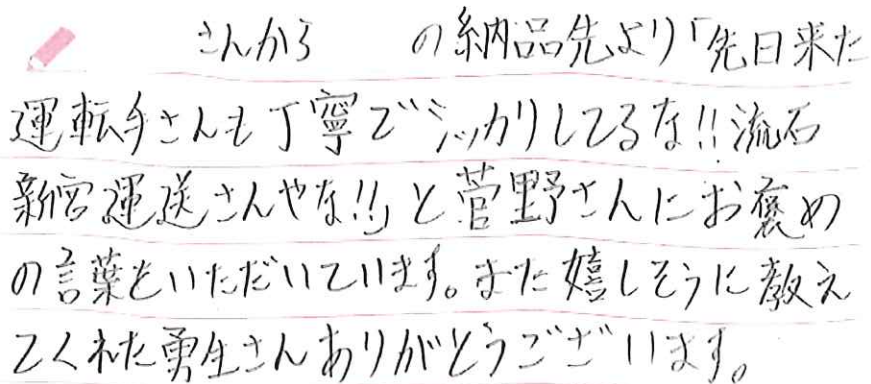 さんから の納品先より「先日来た
運転手さんも丁寧でシッカリしてるな!!流石
新宮運送さんやな!!」と菅野さんにお褒め
の言葉をいただいています。また嬉しそうに教え
てくれた勇生さんありがとうございます。